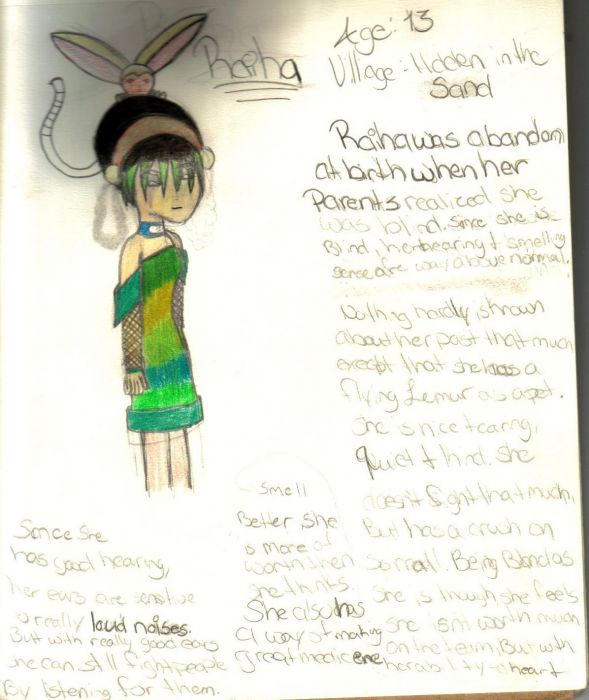 Raiha
Age: 13
Village: Hidden in the
Sand
Raiha was abandon
at birth when her
Parents realized she
was blind. Since she is
Blind, her hearing & smelling
sense are way above normal.
Nothing hardly is known
about her past that much
except that she has a
flying Lemur as a pet.
She is nice & caring,
quiet & kind. She
doesn't fight that much,
But has a crush on
Being Blind as
she is though she feels
she isn't worth much
on the team, But with
her ability to heart
Smell
Better, she
is more of
worth then
she thinks.
She also has
a way of making
great medicene
Since She
has good hearing,
her ears are sensitive
to really loud noises.
But with really good ears
she can still fight people
By listening for them.